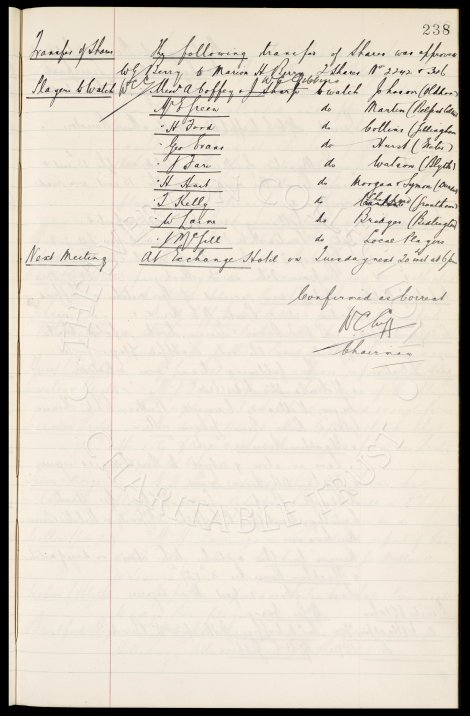 238
Transfer of Shares The following transfer of Shares was approved
W G Perry to Marion H Perry 2 Shares No 2242 306
Players to Watch Messrs A Coffey & J Sharp to watch Johnson (
Mr E Green do Martin (
" H Ford do Collins (Gillingham
" Geo Evans do Hurst (
" J Fare do Watson (Blyth)
" H Hart do Morgan & Symon (
" J Kelly do (Grantham)
" W Cairns do Bridges (Bedlington
" J McGill do Local Players
Next Meeting At Exchange Hotel on Tuesday next 20 inst at 6 pm
Confirmed as Correct
W. C. Cuff
Chairman
THE
CHARITABLE TRUST